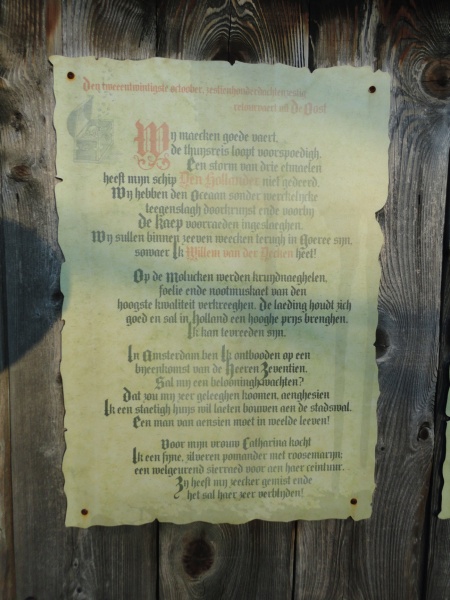 Den tweeentwintigste october, zestienhonderdachtenzestig
retourvaert uit De Oost
Wij maecken goede vaert,
de thuijsreis loopt voorspoedigh.
Een storm van drie etmaelen
heeft mijn schip Den Hollander niet gedeerd.
Wij hebben den Oceaan sonder werckelijcke
leegenslagh doorkruijst ende voorbij
de Kaep voorraeden ingeslaeghen.
Wij sullen binnen zeeven weecken terugh in Goeree sijn,
sowaer Ik Willem van der heel!
Op de Molucken werden kruijdnaeghelen,
foelie ende nootmuskaet van den
hoogste kwaliteit verkreeghen. De laeding houdt zich
goed en sal in Holland een hooghe prijs brenghen.
Ik kan tevreeden sijn.
In Amsterdam ben Ik ontbooden op een
bijeenkomst van de Heeren Zeventien.
Sal mij een belooningh wachten?
Dat zou mij zeer geleeghen koomen, aenghesien
Ik een staetigh huijs wil laeten bouwen aen de stadswal.
Een man van aensien moet in weelde leeven!
Voor mijn vrouw Catharina kocht
Ik een fijne, zilveren pomander met roosemarijn;
een welgeurend sierraed voor aen haer ceintuur.
Zij heeft mij zeecker gemist ende
het sal haer zeer verblijden!